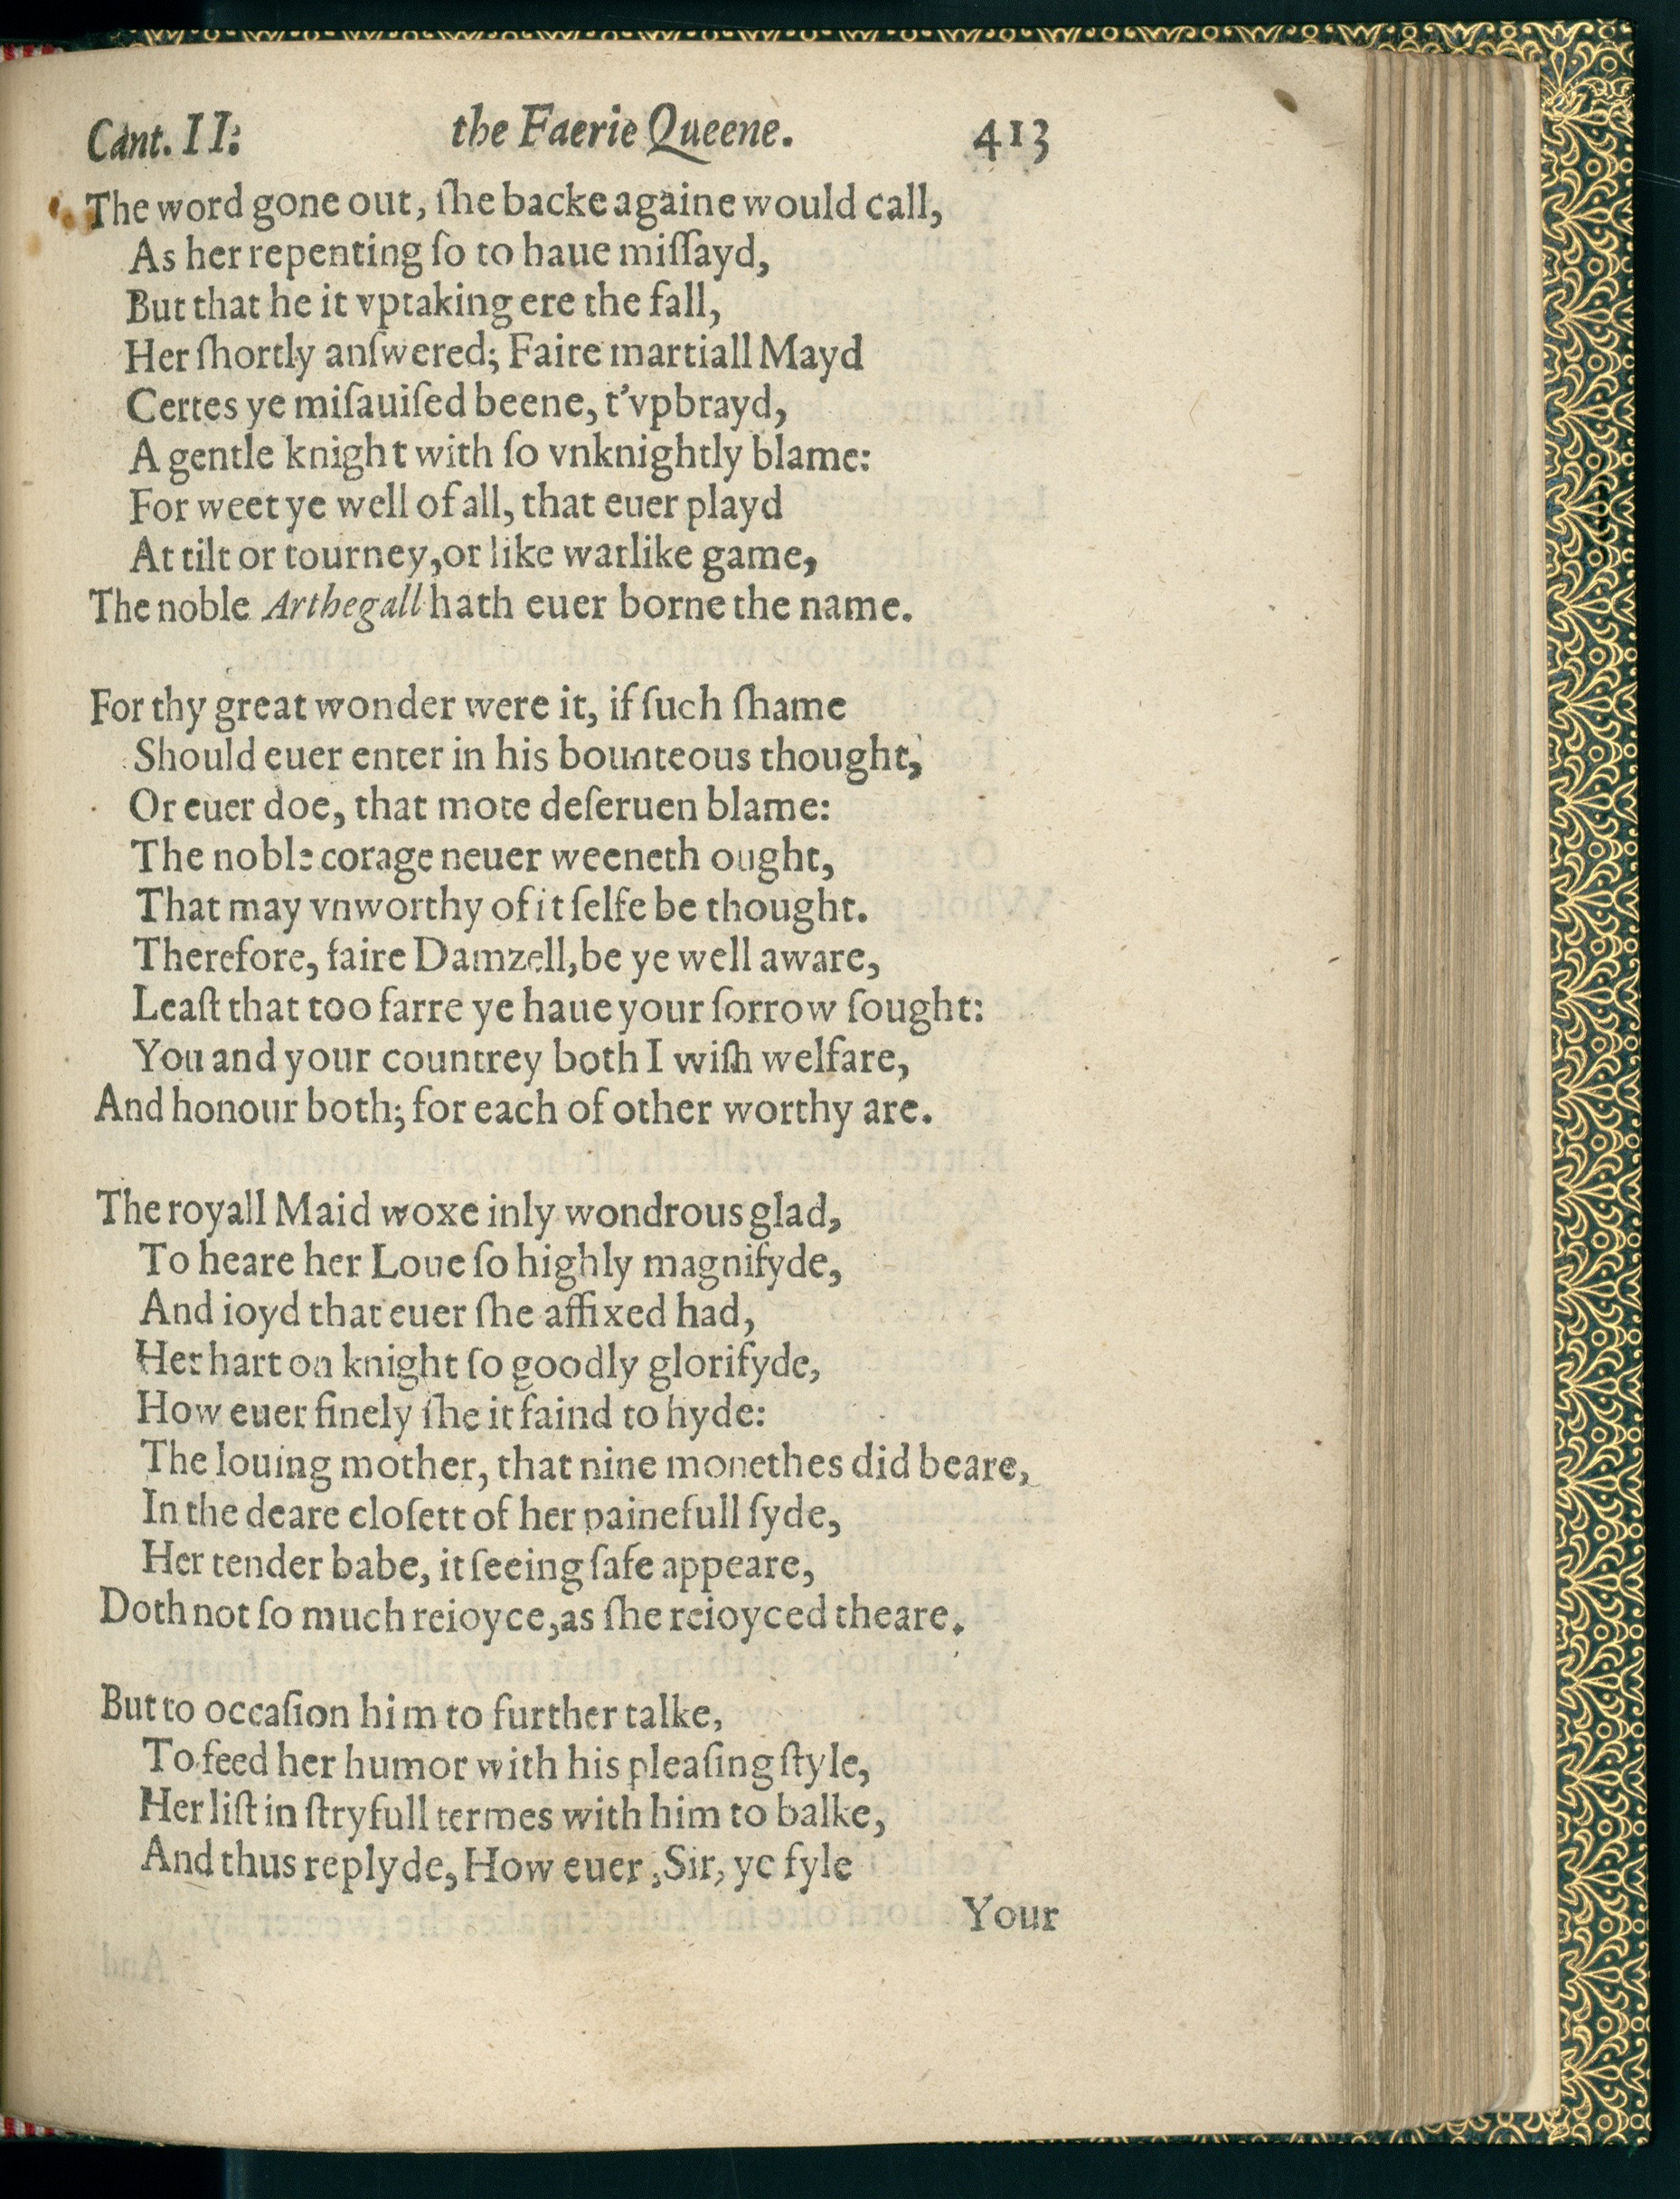 Cant. II: the Faerie Queene. 413
The word gone out, ſhe backe againe would call,
As her repenting ſo to haue miſſayd,
But that he it vptaking ere the fall,
Her ſhortly anſwered; Faire martiall Mayd
Certes ye miſauiſed beene, t'vpbrayd,
A gentle knight with ſo vnknightly blame:
For weet ye well of all, that euer playd
At tilt or tourney, or like warlike game,
The noble Arthegall hath euer borne the name.
For thy great wonder were it, if ſuch ſhame
Should euer enter in his bounteous thought,
Or euer doe, that mote deſeruen blame:
The noble corage neuer weeneth ought,
That may vnworthy of it ſelfe be thought.
Therefore, faire Damzell, be ye well aware,
Leaſt that too farre ye haue your ſorrow ſought:
You and your countrey both I wiſh welfare,
And honour both; for each of other worthy are.
The royall Maid woxe inly wondrous glad,
To heare her Loue ſo highly magnifyde,
And ioyd that euer ſhe affixed had,
Her hart on knight ſo goodly glorifyde,
How euer finely ſhe it faind to hyde:
The louing mother, that nine monethes did beare,
In the deare cloſett of her painefull ſyde,
Her tender babe, it ſeeing ſafe appeare,
Doth not ſo much reioyce, as ſhe reioyced theare.
But to occaſion him to further talke,
To feed her humor with his pleaſing ſtyle,
Her liſt in ſtryfull termes with him to balke,
And thus replyde, How euer, Sir, ye fyle
Your